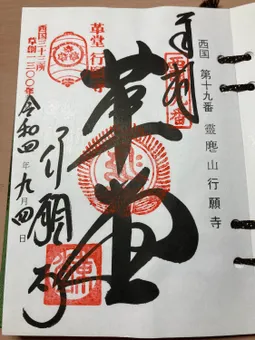 西国 第十九番 靈麀山行願寺
奉拝
革堂
革堂 行願寺
西国三十三所
草創一三〇〇年
令和四年九月四日
行願寺